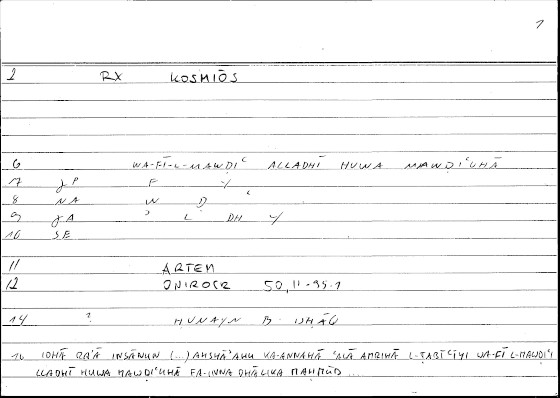 1
2 RX KOSMIŌS
6 WA-FĪ-L-MAWḌIʿ ALLADHĪ HUWA MAWḌIʿUHĀ
7 JP F Y
8 NA W Ḍ ʿ
9 JA ʾ L DH Y
10 SE
11 ARTEM
12 ONIROCR 50, 11-95.1
14 ? ḤUNAYN B. ISḤĀQ
16 IDHĀ RAʾĀ INSĀNUN (...) AḤSHĀʾAHU KA-ANNAHĀ ʿALĀ AMRIHĀ L-ṬABĪʿĪYI WA-FĪ L-MAWḌIʿI
LLADHĪ HUWA MAWḌIʿUHĀ FA-INNA DHĀLIKA MAḤMŪD ...